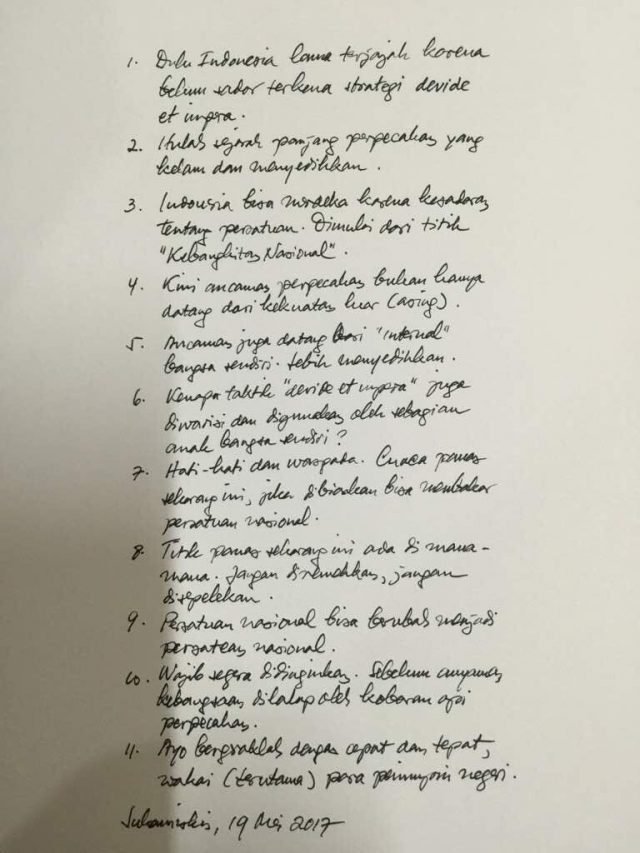 1. Dulu Indonesia lama terjajah karena
belum sadar terkena strategi devide
et impera.
2. Itulah sejarah panjang perpecahan yang
kelam dan menyedihkan.
3. Indonesia bisa merdeka karena kesadaran
tentang persatuan. Dimulai dari titik
"Kebangkitan Nasional".
4. Kini ancaman perpecahan bukan hanya
datang dari kekuatan luar (asing).
5. Ancaman juga datang dari "internal"
bangsa sendiri. Lebih menyedihkan.
6. Kenapa taktik "devide et impera" juga
diwarisi dan digunakan oleh sebagian
anak bangsa sendiri?
7. Hati-hati dan waspada. Cuaca panas
sekarang ini, jika dibiarkan bisa membakar
persatuan nasional.
8. Titik panas sekarang ini ada di mana-
mana. Jangan diremehkan, jangan
disepelekan.
9. Persatuan nasional bisa berubah menjadi
persatean nasional.
10. Wajib segera didinginkan. Sebelum anyaman
kebangsaan dilalap oleh kobaran api
perpecahan.
11. Ayo bergeraklah dengan cepat dan tepat,
wahai (terutama) para pemimpin negeri.
Sukamiskin, 19 Mei 2017